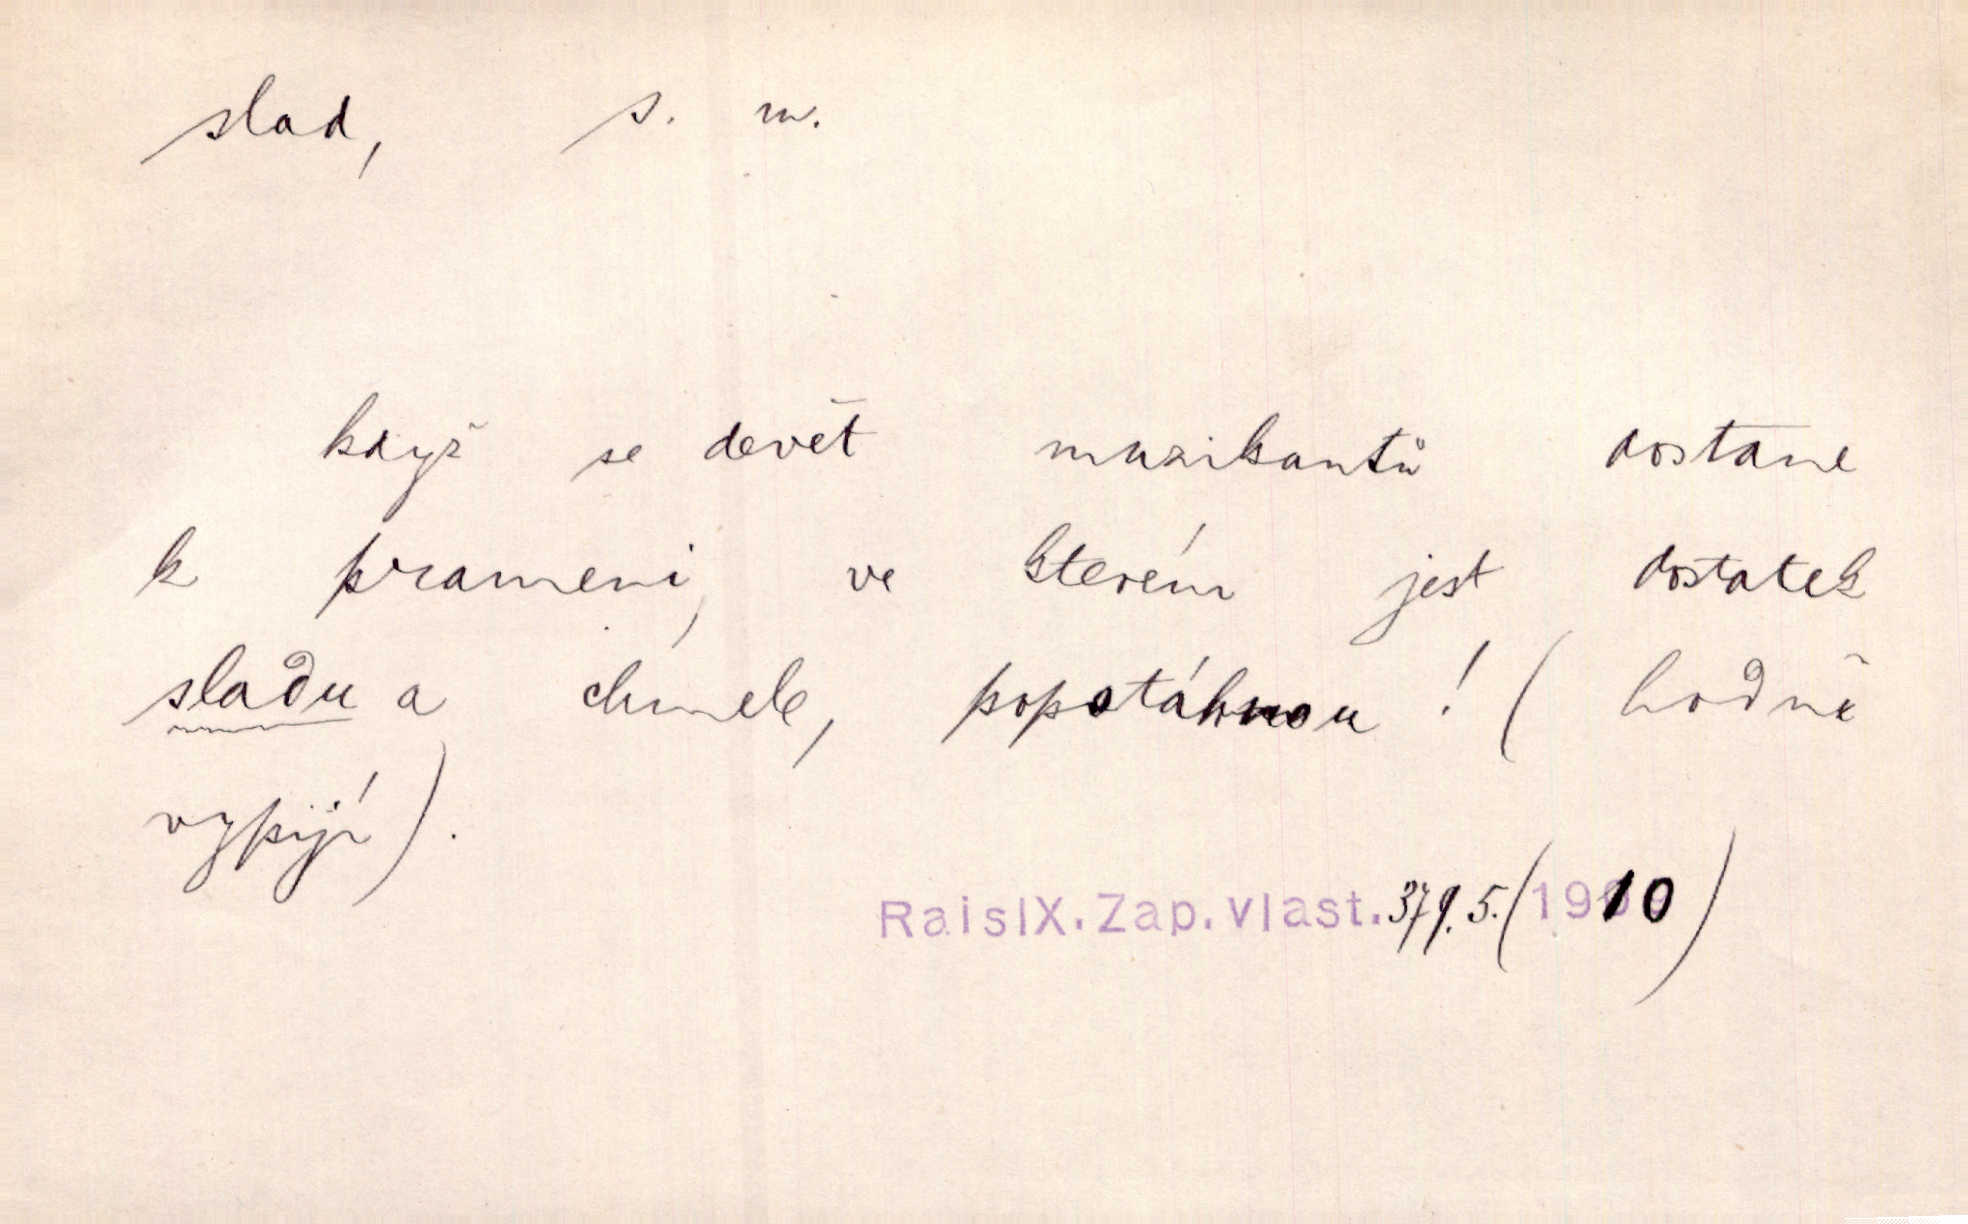 slad, s. m.
když se devět muzikantů dostane
k prameni, ve kterém jest dostatek
sladu a chmele, popotáhnou! (hodně
vypijí).
Rais IX. Zap. vlast. 379. 5. (1910)